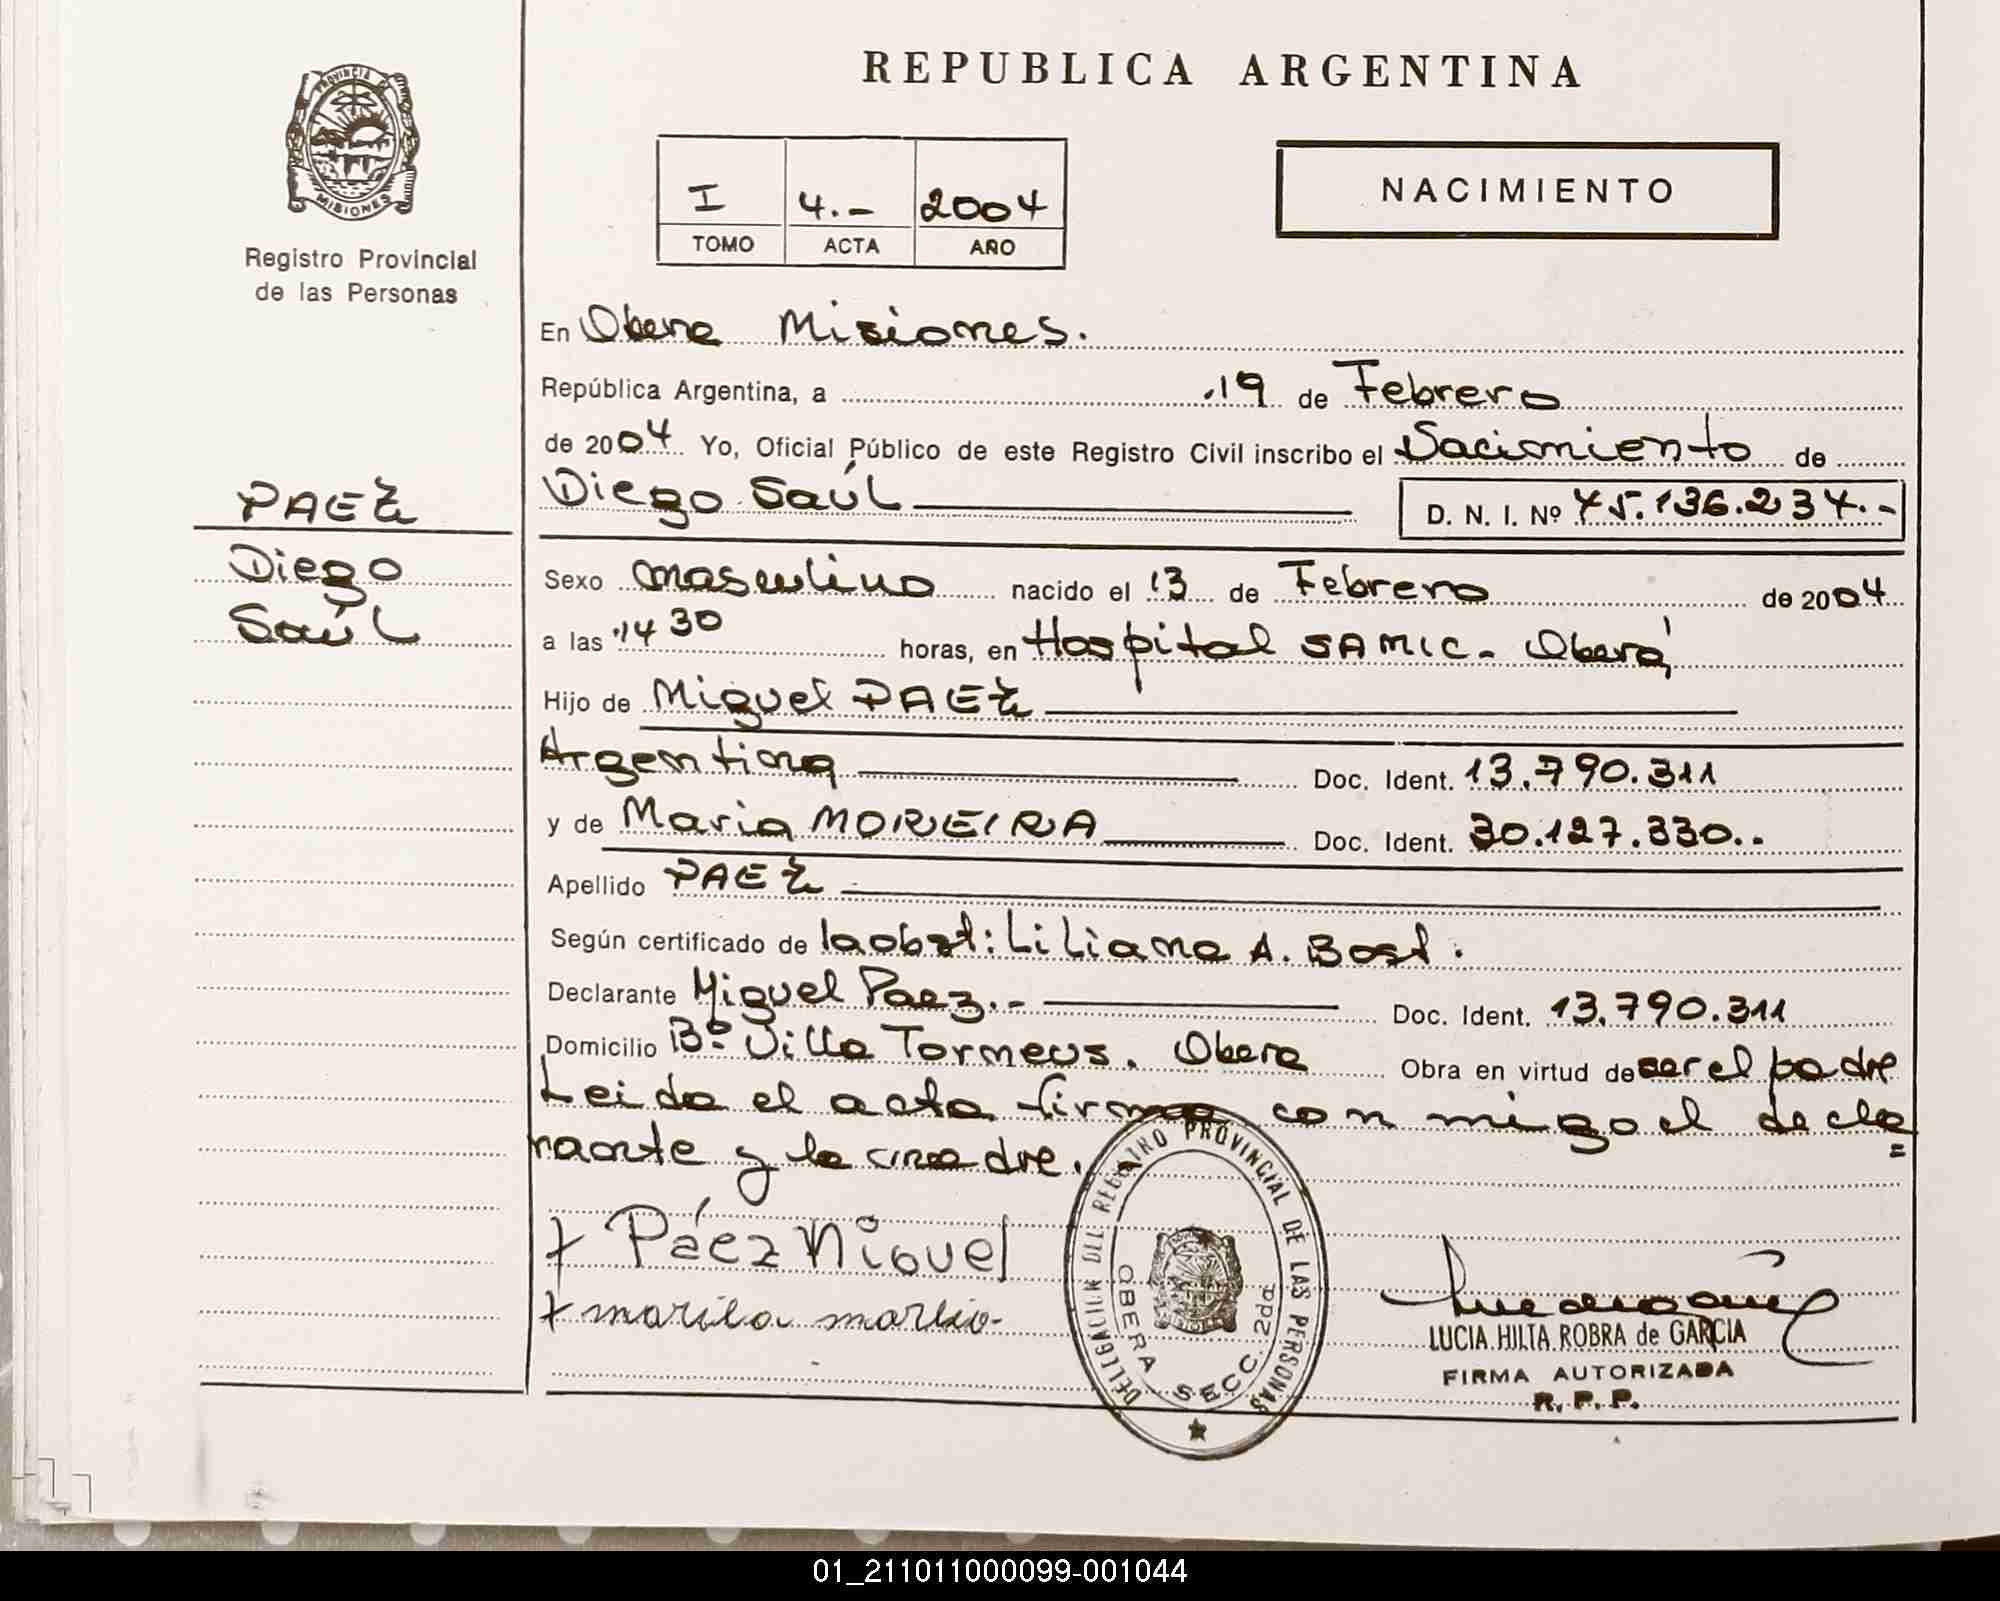 PROVINCIA DE
MISIONES
Registro Provincial
de las Personas
REPUBLICA ARGENTINA
I 4.- 2004
TOMO ACTA AÑO
NACIMIENTO
En Obera Misiones.
República Argentina, a .19 de Febrero
de 2004 Yo, Oficial Público de este Registro Civil inscribo el Nacimiento de
PAEZ
Diego Saúl
D. N. I. Nº 45.136.234.-
Diego
Saúl
Sexo masculino nacido el 13 de Febrero de 2004
a las 14 30 horas, en Hospital SAMIC - Oberá
Hijo de Miguel PAEZ
Argentina Doc. Ident. 13.790.311
y de Maria MOREIRA Doc. Ident. 30.127.330..
Apellido PAEZ
Según certificado de la obst: Liliana A. Bost.
Declarante Miguel Paez.- Doc. Ident. 13.790.311
Domicilio Bº Villa Torneus. Obera Obra en virtud de ser el padre
Leida el acta firma con migo el decla
=
rante y la madre.
+ Páez Miguel
DELGACION DEL REGISTRO PROVINCIAL DE LAS PERSONAS
OBERA SECC. 2da
LUCIA HILTA ROBRA de GARCIA
FIRMA AUTORIZADA
R. P. P.
01_211011000099-001044